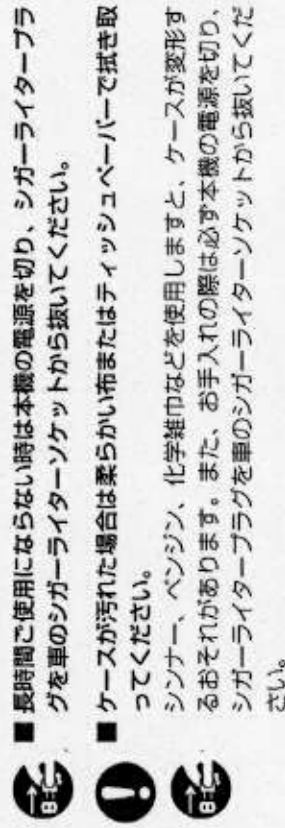 ■ 長時間ご使用にならない時は本機の電源を切り、シガーライタープラ
グを車のシガーライターソケットから抜いてください。
■ ケースが汚れた場合は柔らかい布またはティッシュペーパーで拭き取
ってください。
シンナー、ベンジン、化学雑巾などを使用しますと、ケースが変形す
るおそれがあります。また、お手入れの際は必ず本機の電源を切り、
シガーライタープラグを車のシガーライターソケットから抜いてくだ
さい。